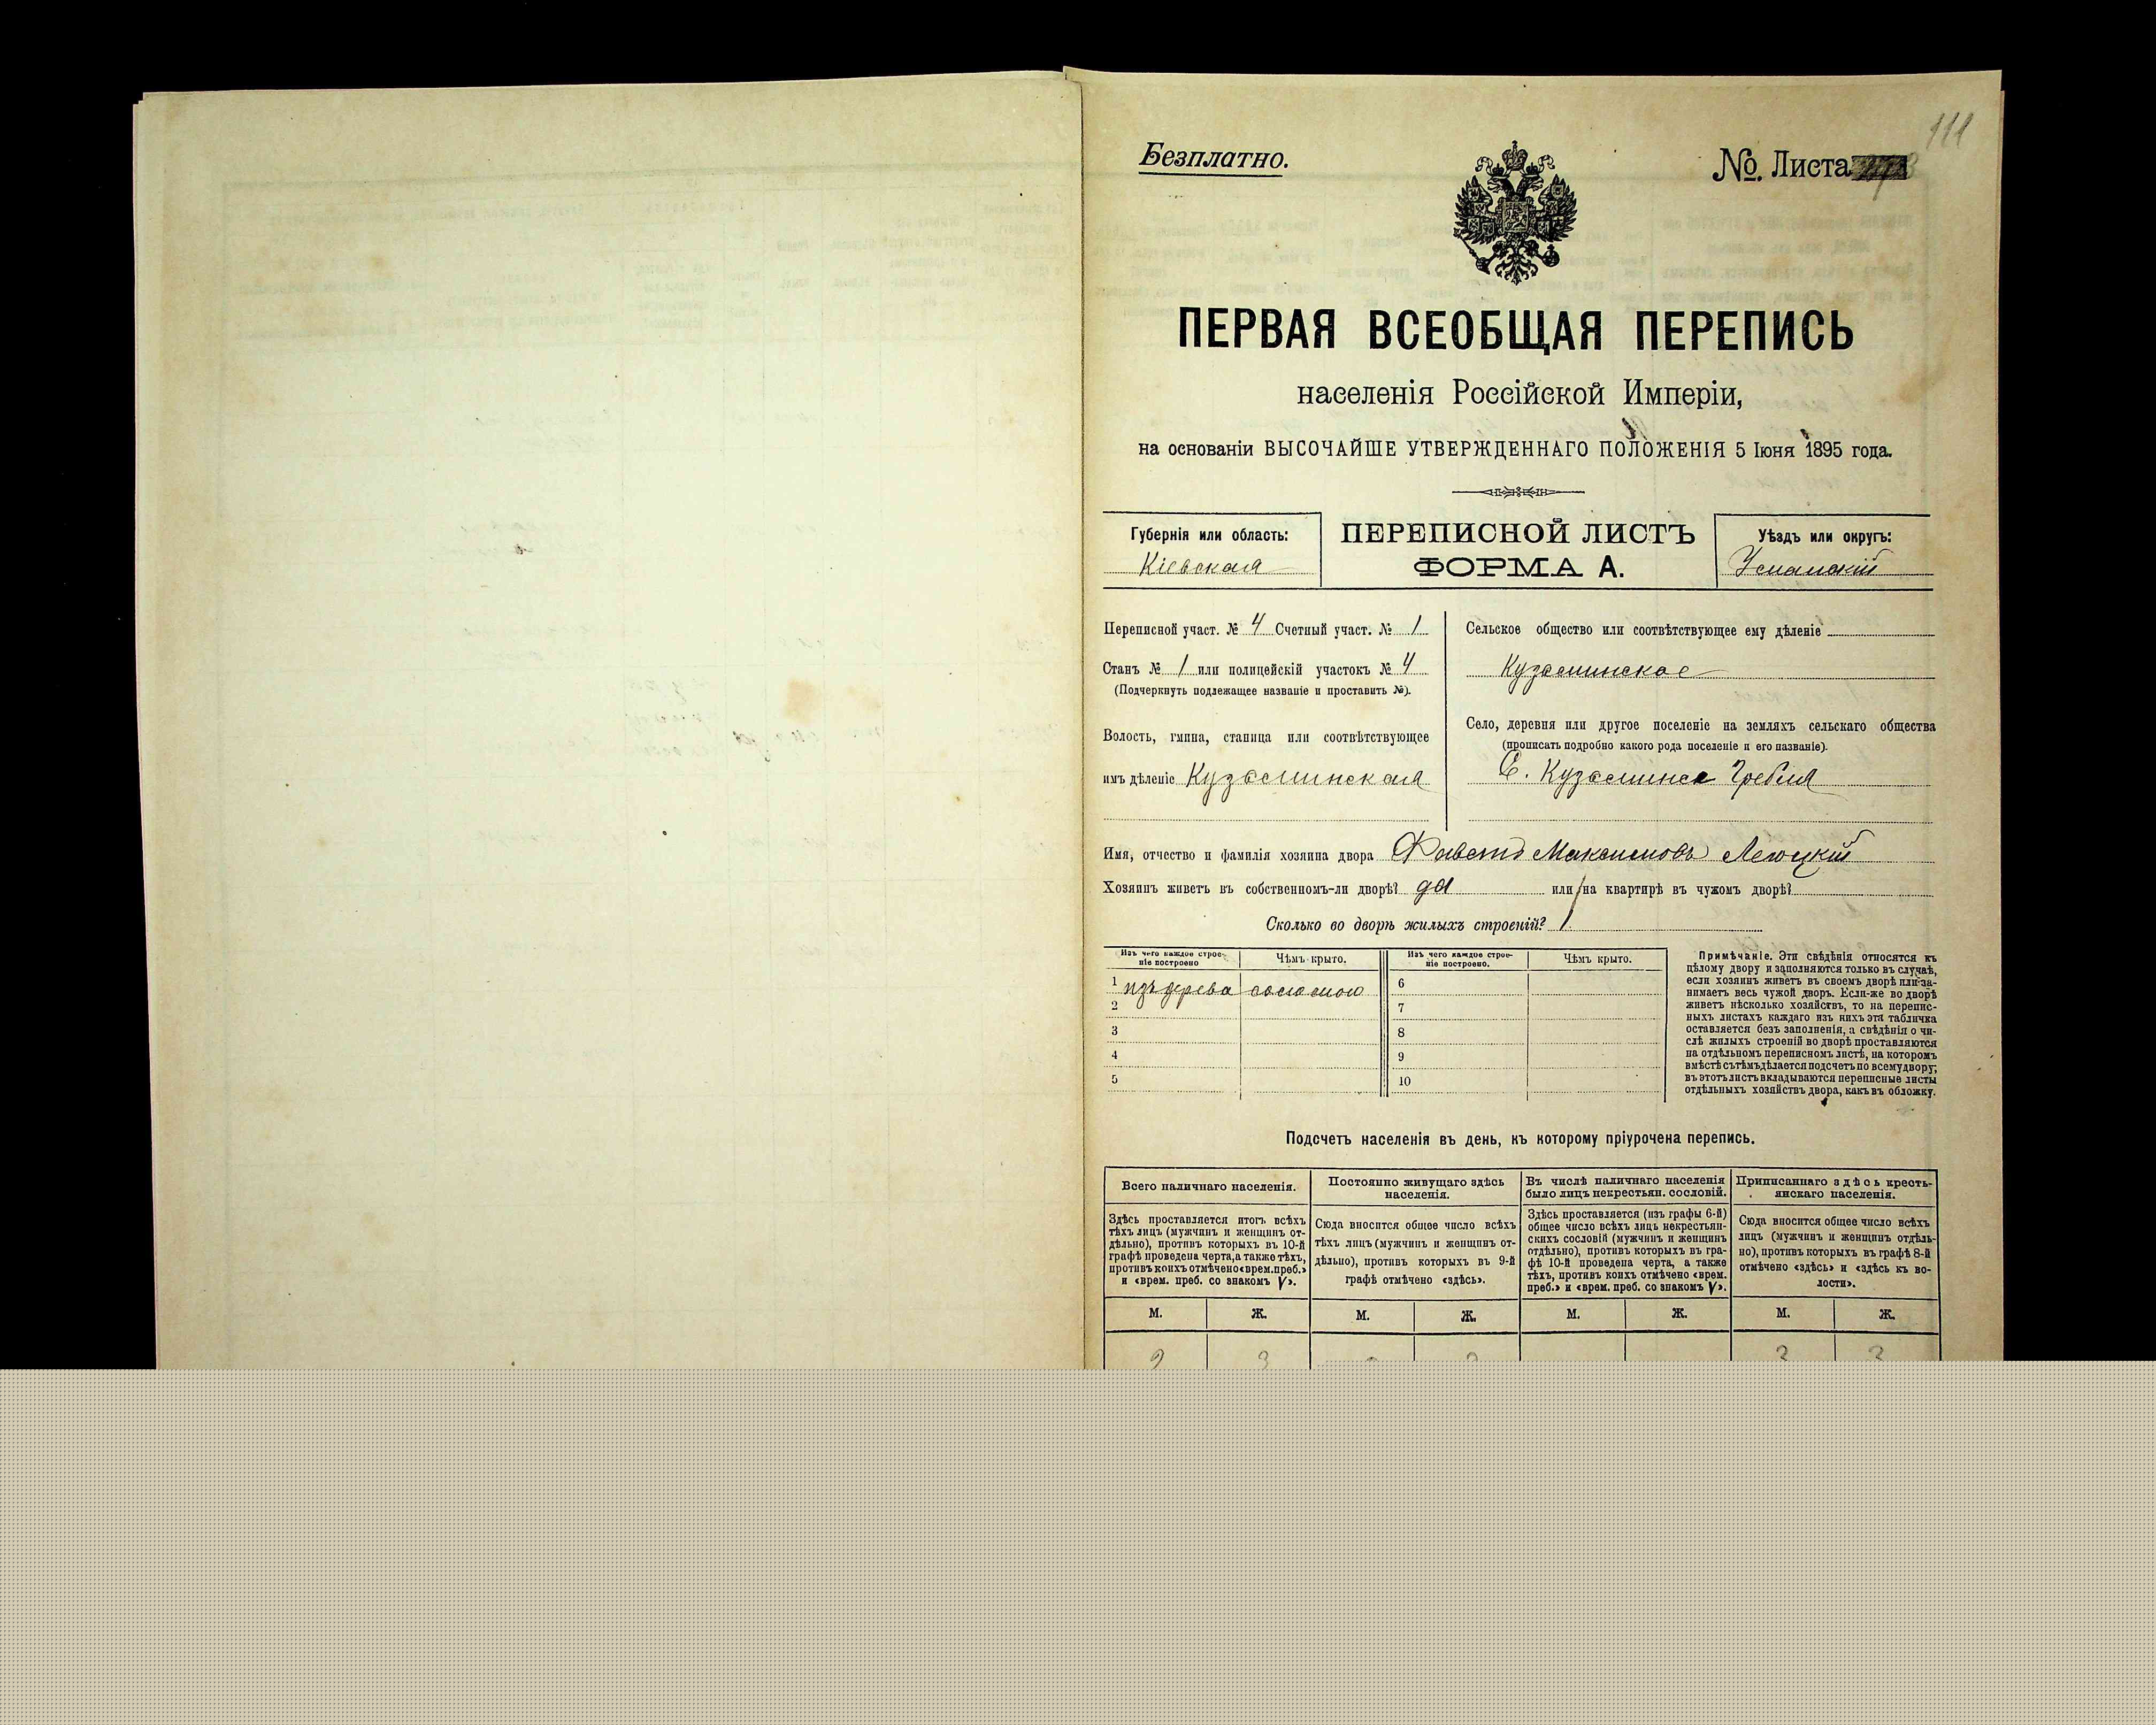 111
Безплатно.
№. Листа
ПЕРВАЯ ВСЕОБЩАЯ ПЕРЕПИСЬ
населенія Россійской Имперіи,
на основаніи ВЫСОЧАЙШЕ УТВЕРЖДЕННАГО ПОЛОЖЕНІЯ 5 Іюня 1895 года.
Губернія или область:
Кіевская
ПЕРЕПИСНОЙ ЛИСТЪ
ФОРМА А.
Уѣздъ или округъ:
Уманскій
Переписной участ. № 4 Счетный участ. № 1
Станъ № 1 или полицейскій участокъ № 4
(Подчеркнуть подлежащее названіе и проставить №).
Волость, гмина, станица или соотвѣтствующее
имъ дѣленіе Кузьминская
Сельское общество или соотвѣтствующее ему дѣленіе
Кузьминское
Село, деревня или другое поселеніе на земляхъ сельскаго общества
(прописать подробно какого рода поселеніе и его названіе).
С. Кузьмина Гребля
Имя, отчество и фамилія хозяина двора Фавстъ Максимовъ
Хозяинъ живетъ въ собственномъ-ли дворѣ? да или на квартирѣ въ чужомъ дворѣ?
Сколько во дворѣ жилыхъ строеній? 1
Изъ чего каждое строе-
ніе построено
Чѣмъ крыто.
Изъ чего каждое строе-
ніе построено.
Чѣмъ крыто.
1 изъ дерева соломою 6
2 7
3 8
4 9
5 10
Примѣчаніе. Эти свѣдѣнія относятся къ
цѣлому двору и заполняются только въ случаѣ,
если хозяинъ живетъ въ своемъ дворѣ или за-
нимаетъ весь чужой дворъ. Если-же во дворѣ
живетъ нѣсколько хозяйствъ, то на перепис-
ныхъ листахъ каждаго изъ нихъ эта табличка
оставляется безъ заполненія, а свѣдѣнія о чи-
слѣ жилыхъ строеній во дворѣ проставляются
на отдѣльномъ переписномъ листѣ, на которомъ
вмѣстѣ съ тѣмъ дѣлается подсчетъ по всему двору;
въ этотъ листъ вкладываются переписные листы
отдѣльныхъ хозяйствъ двора, какъ въ обложку.
Подсчетъ населенія въ день, къ которому пріурочена перепись.
Всего наличнаго населенія.
Здѣсь проставляется итогъ всѣхъ
тѣхъ лицъ (мужчинъ и женщинъ от-
дѣльно), противъ которыхъ въ 10-й
графѣ проведена черта, а также тѣхъ,
противъ коихъ отмѣчено «врем. преб.»
и «врем. преб. со знакомъ V».
Постоянно живущаго здѣсь
населенія.
Сюда вносится общее число всѣхъ
тѣхъ лицъ (мужчинъ и женщинъ от-
дѣльно), противъ которыхъ въ 9-й
графѣ отмѣчено «здѣсь».
Въ числѣ наличнаго населенія
было лицъ некрестьян. сословій.
Здѣсь проставляется (изъ графы 6-й)
общее число всѣхъ лицъ некрестьян-
скихъ сословій (мужчинъ и женщинъ
отдѣльно), противъ которыхъ въ гра-
фѣ 10-й проведена черта, а также
тѣхъ, противъ коихъ отмѣчено «врем.
преб.» и «врем. преб. со знакомъ V».
Приписаннаго здѣсь кресть-
янскаго населенія.
Сюда вносится общее число всѣхъ
лицъ (мужчинъ и женщинъ отдѣль-
но), противъ которыхъ въ графѣ 8-й
отмѣчено «здѣсь» и «здѣсь къ во-
лости».
М. Ж. М. Ж. М. Ж. М. Ж.